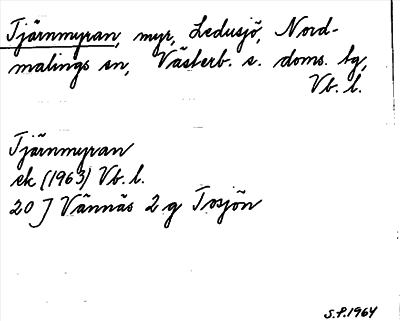 Tjärnmyran, myr, Ledusjö, Nord-
malings sn, Västerb. s. doms. tg,
Vb. l.
Tjärnmyran
ek (1963) Vb. l.
20 J Vännäs 2 g Tosjön
S.P. 1964